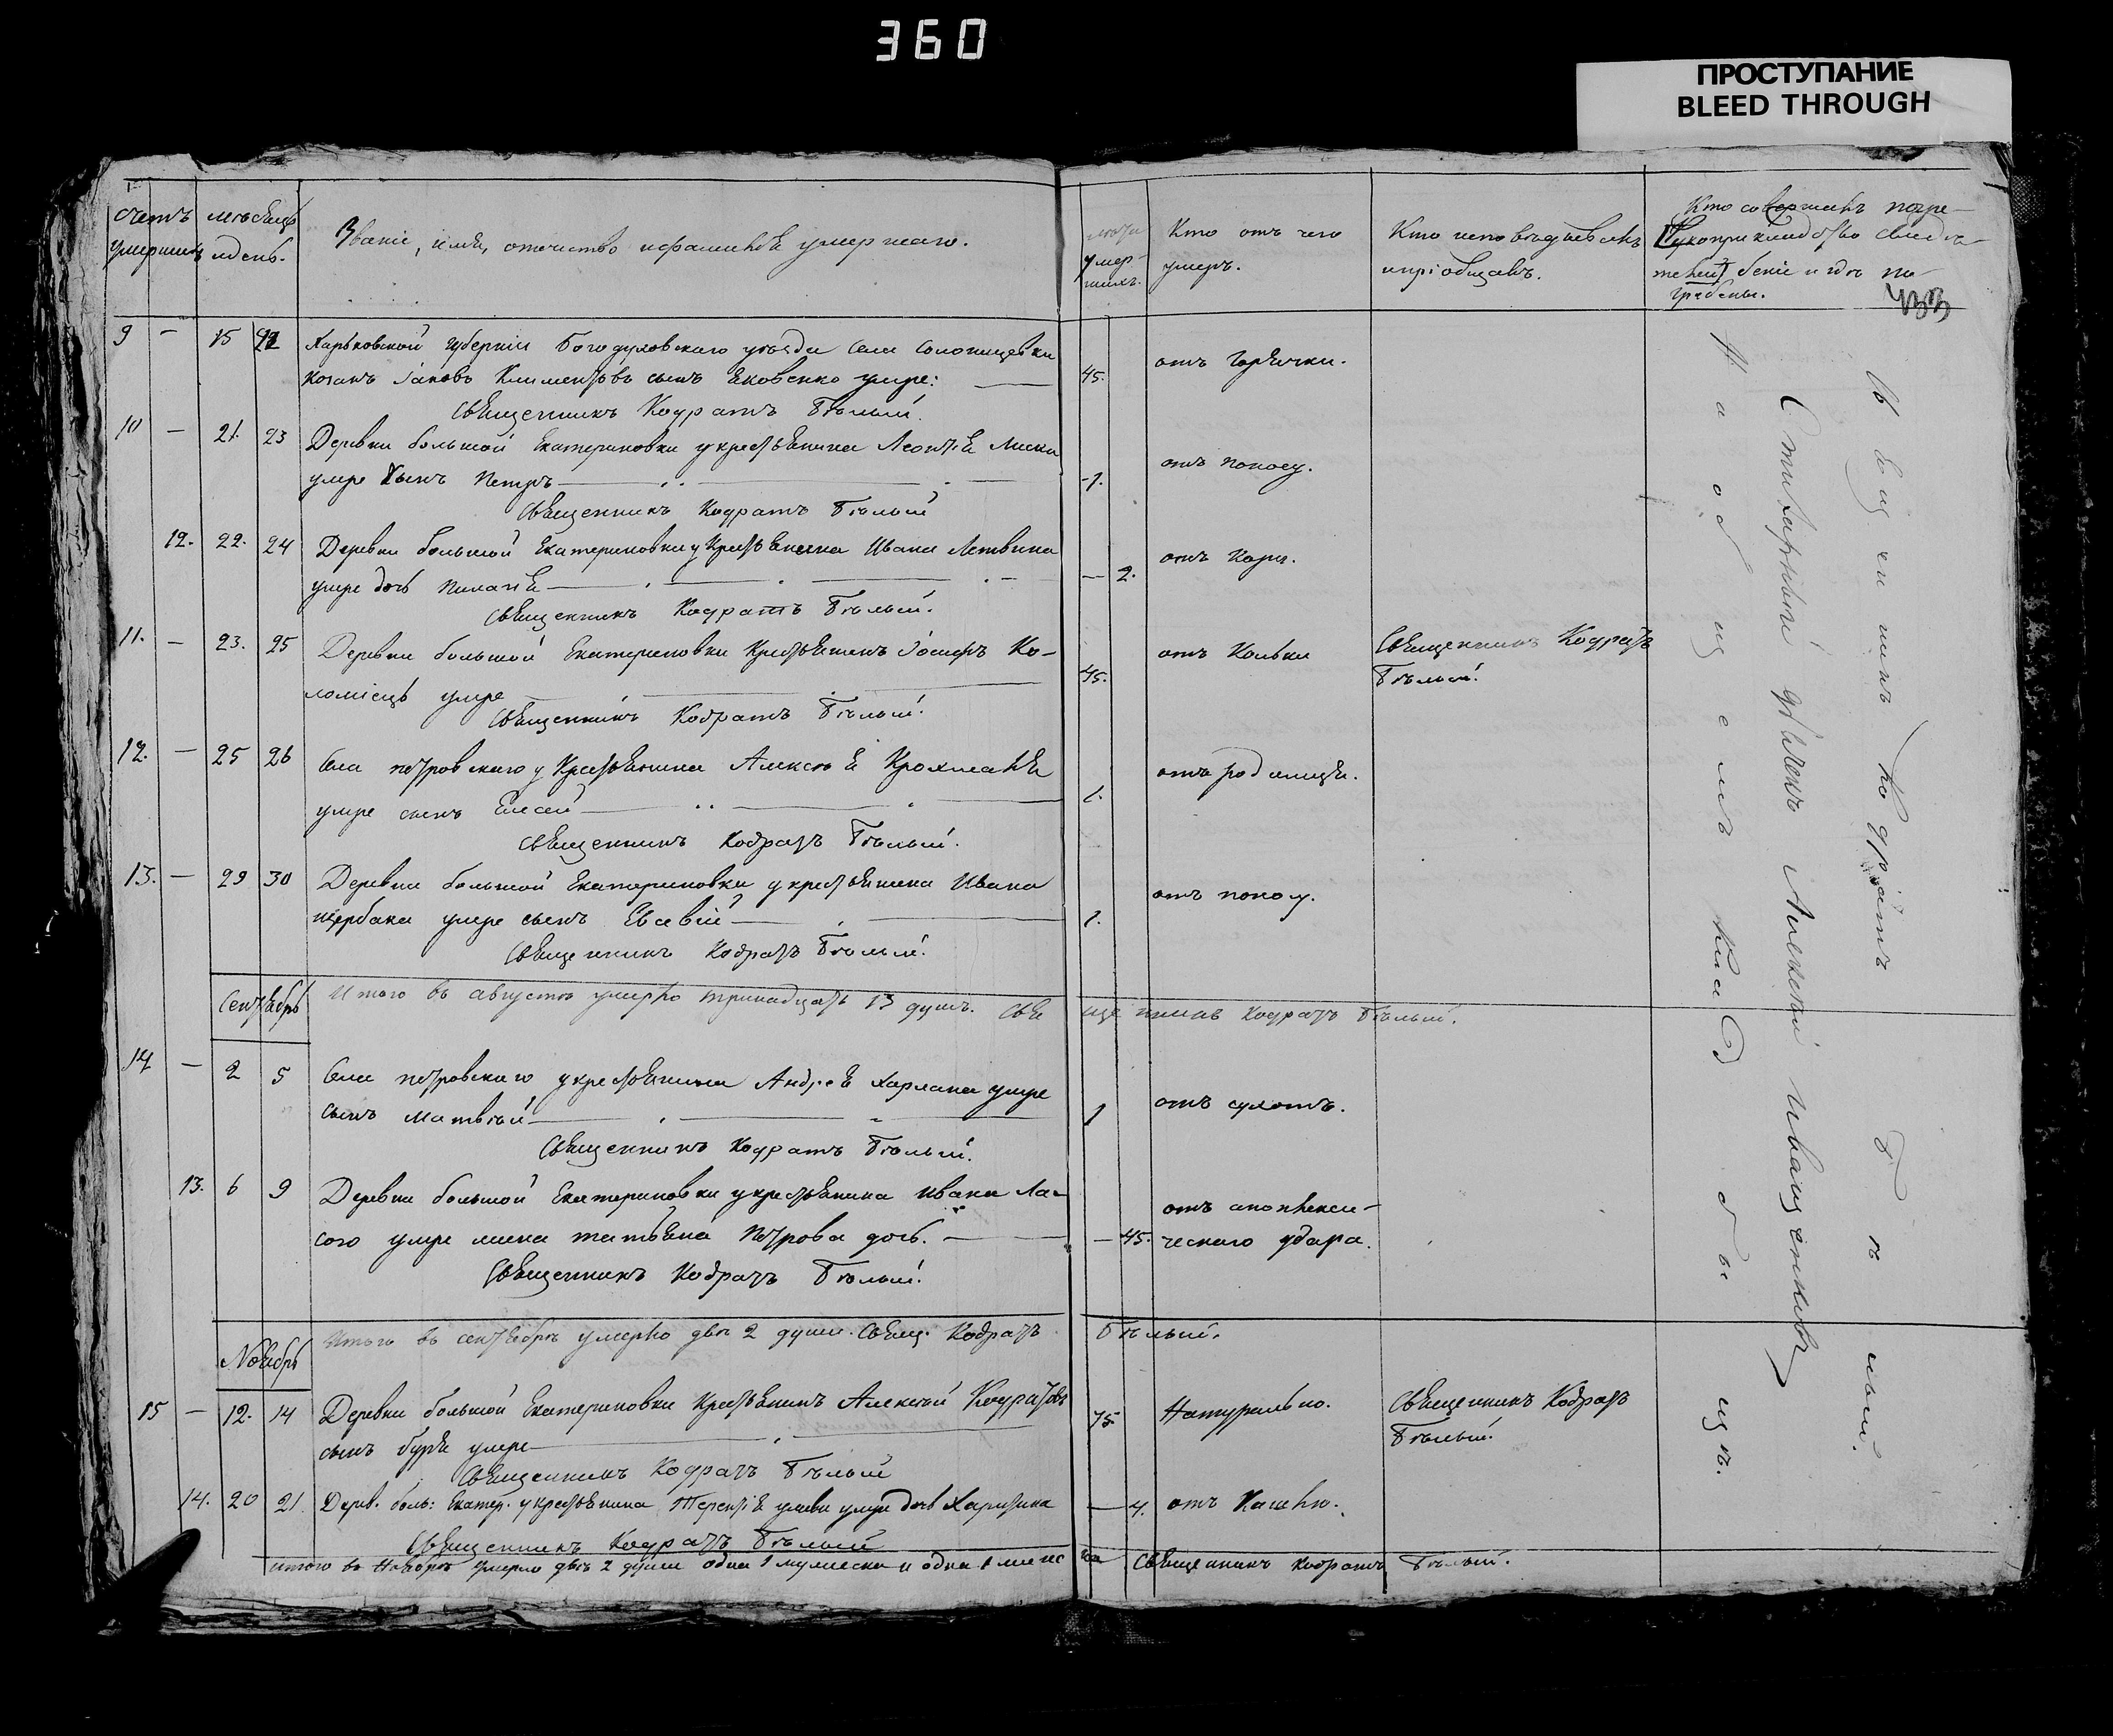 360
ПРОСТУПАНИЕ
BLEED THROUGH
Счетъ умершихъ
месѣцъ и день.
Званіе, имя, отечество и фамилія умершаго.
лѣта умер-
шихъ.
Кто отъ чего
умеръ.
Кто исповѣдывалъ
и пріобщалъ.
Кто совершалъ погре-
беніе и гдѣ по-
гребены.
Рукоприкладство свидѣ-
433
9 — 15 Харьковской губерніи Богодуховскаго уѣзда села
козакъ Іаковъ Климентовъ сынъ Яковенко умре: 45. отъ Горячки.
Священникъ Кодратъ Бѣлый.
10 — 21. 23 Деревни большой Екатериновки у крестьянина Леонтія
умре сынъ Петръ 1. отъ поносу.
Священникъ Кодратъ Бѣлый
12. 22. 24 Деревни большой Екатериновки у крестьянина Ивана Литвина
умре дочь Пелагія — 2. отъ Кору.
Священникъ Кодратъ Бѣлый.
11. — 23. 25 Деревни большой Екатериновки крестьянинъ Іосифъ Ко-
ломіецъ умре 45. отъ Кольки Священникъ Кодратъ
Бѣлый.
Священникъ Кодратъ Бѣлый.
12. — 25 26 Села петровскаго у крестьянина Алексѣя
умре сынъ Елисей 1. отъ родимца.
Священникъ Кодратъ Бѣлый.
13. — 29 30 Деревни большой Екатериновки у крестьянина Ивана
щербака умре сынъ Евсевій 1. отъ поносу.
Священникъ Кодратъ Бѣлый.
Итого въ августѣ умерло тринадцать 13 душъ. Священникъ Кодратъ Бѣлый.
Сентябрь
14 — 2 5 Села петровскаго у крестьянина Андрея Харлана умре
сынъ Матвѣй 1 отъ сухотъ.
Священникъ Кодратъ Бѣлый.
13. 6 9 Деревни большой Екатериновки у крестьянина Ивана Ла-
сого умре жена татьяна Петрова дочь. — 45. отъ апоплекси-
ческаго удара.
Священникъ Кодратъ Бѣлый.
Итого въ сентябрѣ умерло двѣ 2 души. Свящ. Кодратъ Бѣлый.
Ноябрь
15 — 12. 14 Деревни большой Екатериновки крестьянинъ Алексѣй Кодратовъ
сынъ буря умре 75. Натурально. Священникъ Кодратъ
Бѣлый.
Священникъ Кодратъ Бѣлый
14. 20 21. Дерев. боль: Екатер. у крестьянина Терентія умре дочь Харитина — 4. отъ Кашлю.
Священникъ Кодратъ Бѣлый
итого въ Ноябрѣ умерло двѣ 2 души одна 1 мужеска и одна 1 женска Священникъ Кодратъ Бѣлый.
На общемъ кладбищѣ.
Стихарный дьячекъ Алексѣй Иващенковъ
Священникъ Кодратъ Бѣлый.